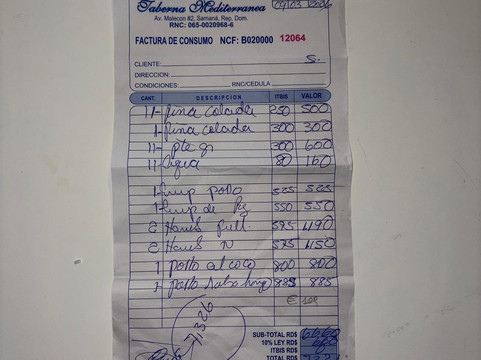 Taberna Mediterranea
Av. Malecon #2, Samaná, Rep. Dom.
RNC: 065-0020968-6
FACTURA DE CONSUMO NCF: B020000 12064
CLIENTE:
DIRECCION:
CONDICIONES: RNC/CEDULA
CANT. DESCRIPCION ITBIS VALOR
11- Pina colada 250 500
1- Pina colada 300 300
11- pte gr 300 600
11- Agua 80 160
1- emp pollo 525 525
1- emp de 550 550
2 Hams full 595 1190
2 Hams 575 1150
1 pollo al coco 800 800
1- 885 885
€ 108
SUB-TOTAL RD$
10% LEY RD$
ITBIS RD$
TOTAL RD$